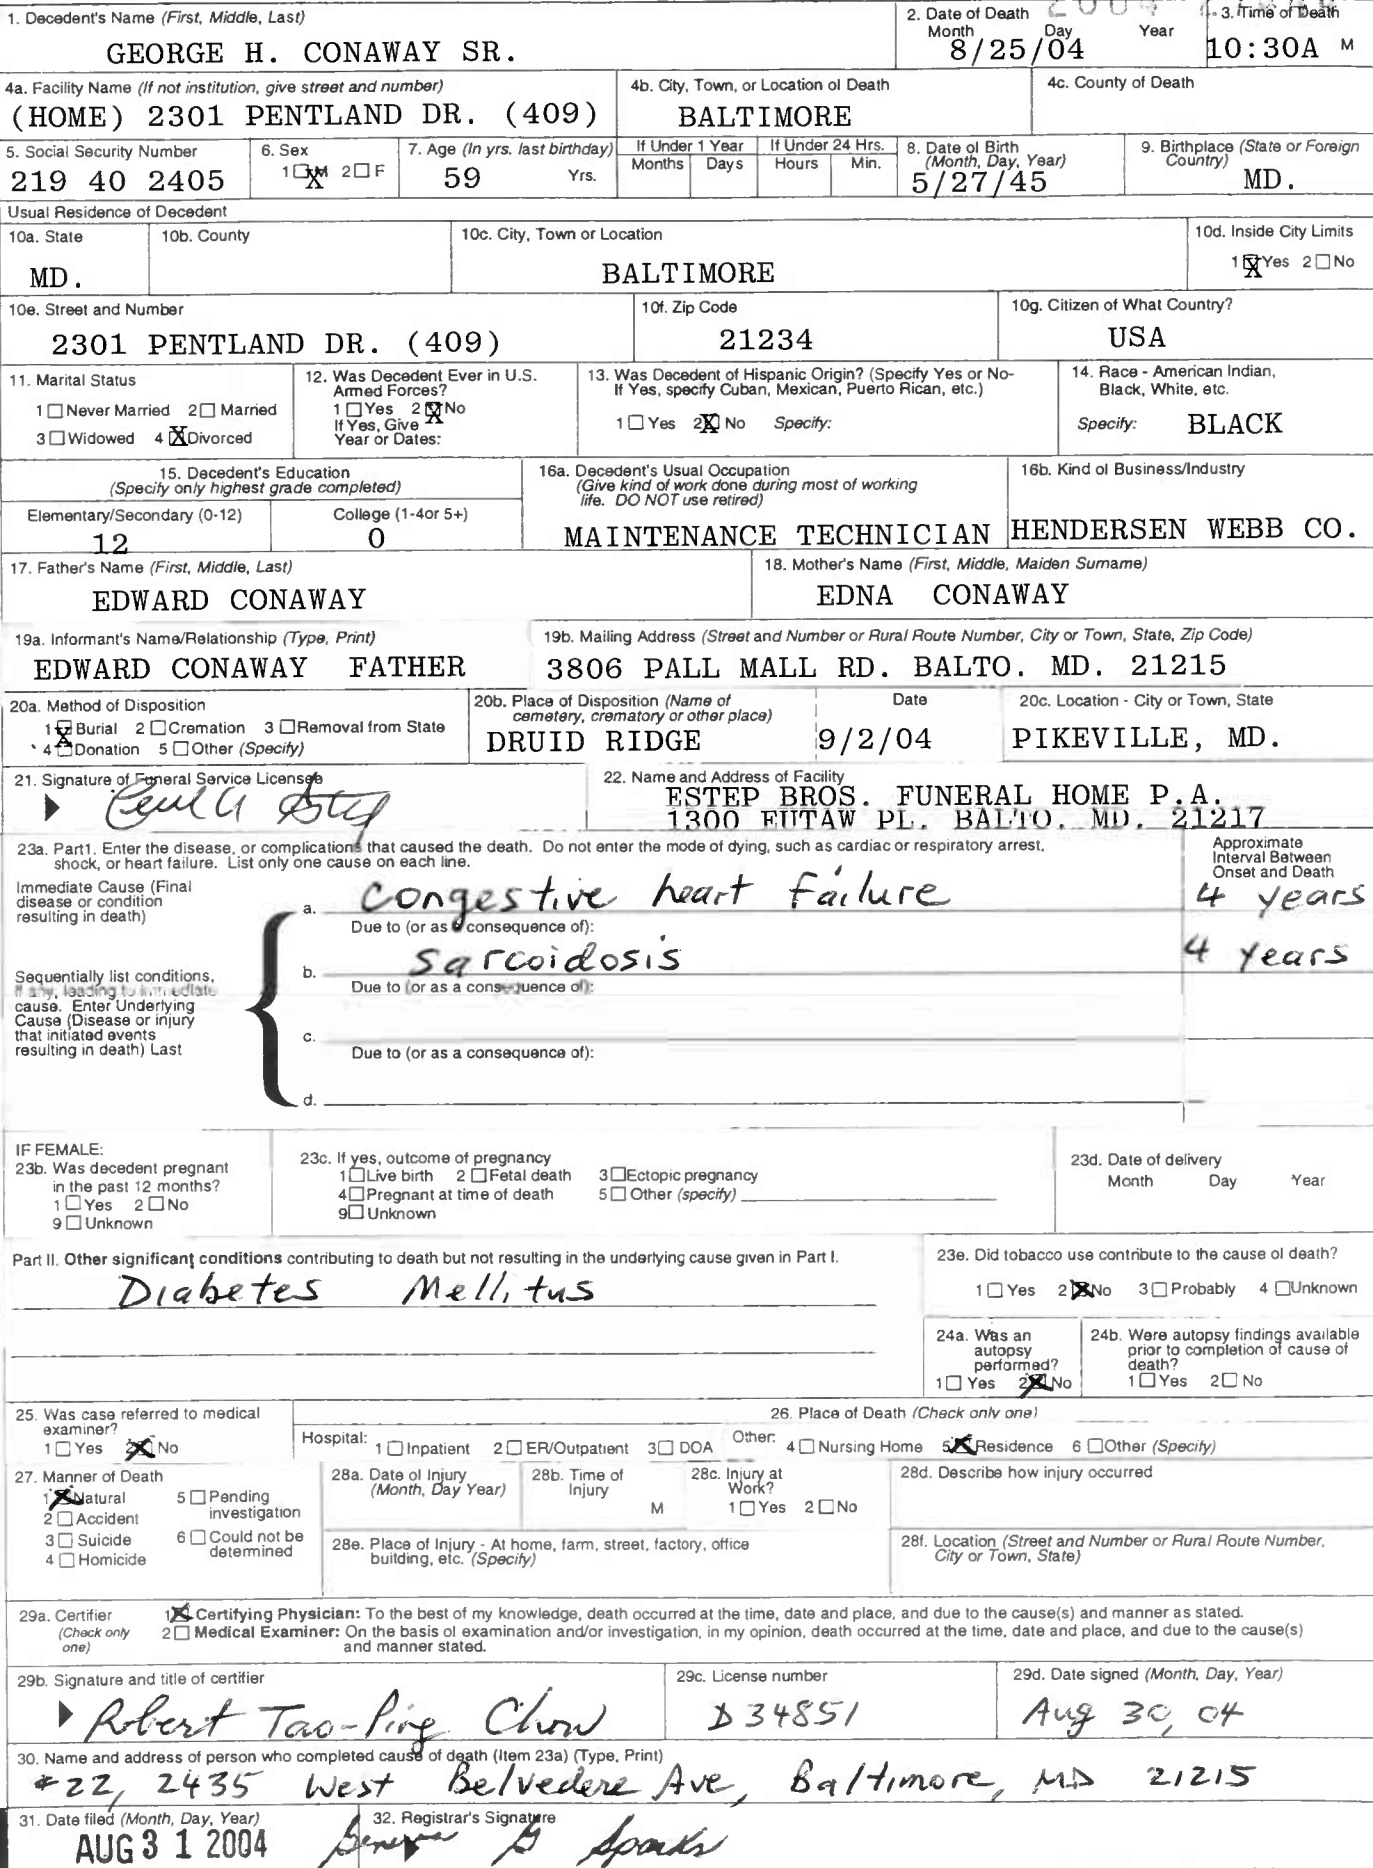 1. Decedent's Name (First, Middle, Last)
GEORGE H. CONAWAY SR.
2. Date of Death
Month Day Year
8/25/04
3. Time of Death
10:30A M
4a. Facility Name (If not institution, give street and number)
(HOME) 2301 PENTLAND DR. (409)
4b. City, Town, or Location of Death
BALTIMORE
4c. County of Death
5. Social Security Number
219 40 2405
6. Sex
1 M 2 F
X
7. Age (In yrs. last birthday)
59 Yrs.
If Under 1 Year
Months Days
If Under 24 Hrs.
Hours Min.
8. Date of Birth
(Month, Day, Year)
5/27/45
9. Birthplace (State or Foreign
Country)
MD.
Usual Residence of Decedent
10a. State
MD.
10b. County
10c. City, Town or Location
BALTIMORE
10d. Inside City Limits
1 X Yes 2 No
10e. Street and Number
2301 PENTLAND DR. (409)
10f. Zip Code
21234
10g. Citizen of What Country?
USA
11. Marital Status
1 Never Married 2 Married
3 Widowed 4 X Divorced
12. Was Decedent Ever in U.S.
Armed Forces?
1 Yes 2 X No
If Yes, Give
Year or Dates:
13. Was Decedent of Hispanic Origin? (Specify Yes or No-
If Yes, specify Cuban, Mexican, Puerto Rican, etc.)
1 Yes 2 X No Specify:
14. Race - American Indian,
Black, White, etc.
Specify: BLACK
15. Decedent's Education
(Specify only highest grade completed)
Elementary/Secondary (0-12)
12
College (1-4or 5+)
0
16a. Decedent's Usual Occupation
(Give kind of work done during most of working
life. DO NOT use retired)
MAINTENANCE TECHNICIAN
16b. Kind of Business/Industry
HENDERSEN WEBB CO.
17. Father's Name (First, Middle, Last)
EDWARD CONAWAY
18. Mother's Name (First, Middle, Maiden Surname)
EDNA CONAWAY
19a. Informant's Name/Relationship (Type, Print)
EDWARD CONAWAY FATHER
19b. Mailing Address (Street and Number or Rural Route Number, City or Town, State, Zip Code)
3806 PALL MALL RD. BALTO. MD. 21215
20a. Method of Disposition
1 X Burial 2 Cremation 3 Removal from State
4 Donation 5 Other (Specify)
20b. Place of Disposition (Name of
cemetery, crematory or other place)
DRUID RIDGE
Date
9/2/04
20c. Location - City or Town, State
PIKEVILLE, MD.
21. Signature of Funeral Service Licensee
22. Name and Address of Facility
ESTEP BROS. FUNERAL HOME P.A.
1300 EUTAW PL. BALTO. MD. 21217
23a. Part1. Enter the disease, or complications that caused the death. Do not enter the mode of dying, such as cardiac or respiratory arrest,
shock, or heart failure. List only one cause on each line.
Approximate
Interval Between
Onset and Death
Immediate Cause (Final
disease or condition
resulting in death)
a. Congestive heart Failure 4 years
Due to (or as a consequence of):
b. Sarcoidosis 4 years
Due to (or as a consequence of):
Sequentially list conditions,
if any, leading to immediate
cause. Enter Underlying
Cause (Disease or injury
that initiated events
resulting in death) Last
c.
Due to (or as a consequence of):
d.
IF FEMALE:
23b. Was decedent pregnant
in the past 12 months?
1 Yes 2 No
9 Unknown
23c. If yes, outcome of pregnancy
1 Live birth 2 Fetal death 3 Ectopic pregnancy
4 Pregnant at time of death 5 Other (specify)
9 Unknown
23d. Date of delivery
Month Day Year
Part II. Other significant conditions contributing to death but not resulting in the underlying cause given in Part I.
Diabetes Mellitus
23e. Did tobacco use contribute to the cause of death?
1 Yes 2 X No 3 Probably 4 Unknown
24a. Was an
autopsy
performed?
1 Yes 2 X No
24b. Were autopsy findings available
prior to completion of cause of
death?
1 Yes 2 No
25. Was case referred to medical
examiner?
1 Yes 2 X No
26. Place of Death (Check only one)
Hospital: 1 Inpatient 2 ER/Outpatient 3 DOA Other: 4 Nursing Home 5 X Residence 6 Other (Specify)
27. Manner of Death
1 X Natural 5 Pending
investigation
2 Accident
3 Suicide 6 Could not be
determined
4 Homicide
28a. Date of Injury
(Month, Day Year)
28b. Time of
Injury
M
28c. Injury at
Work?
1 Yes 2 No
28d. Describe how injury occurred
28e. Place of Injury - At home, farm, street, factory, office
building, etc. (Specify)
28f. Location (Street and Number or Rural Route Number,
City or Town, State)
29a. Certifier
(Check only
one)
1 X Certifying Physician: To the best of my knowledge, death occurred at the time, date and place, and due to the cause(s) and manner as stated.
2 Medical Examiner: On the basis of examination and/or investigation, in my opinion, death occurred at the time, date and place, and due to the cause(s)
and manner stated.
29b. Signature and title of certifier
Robert Tao-Ping Chow
29c. License number
D34851
29d. Date signed (Month, Day, Year)
Aug 30, 04
30. Name and address of person who completed cause of death (Item 23a) (Type, Print)
#22, 2435 West Belvedere Ave, Baltimore, MD 21215
31. Date filed (Month, Day, Year)
AUG 31 2004
32. Registrar's Signature
Geneva G Sparks